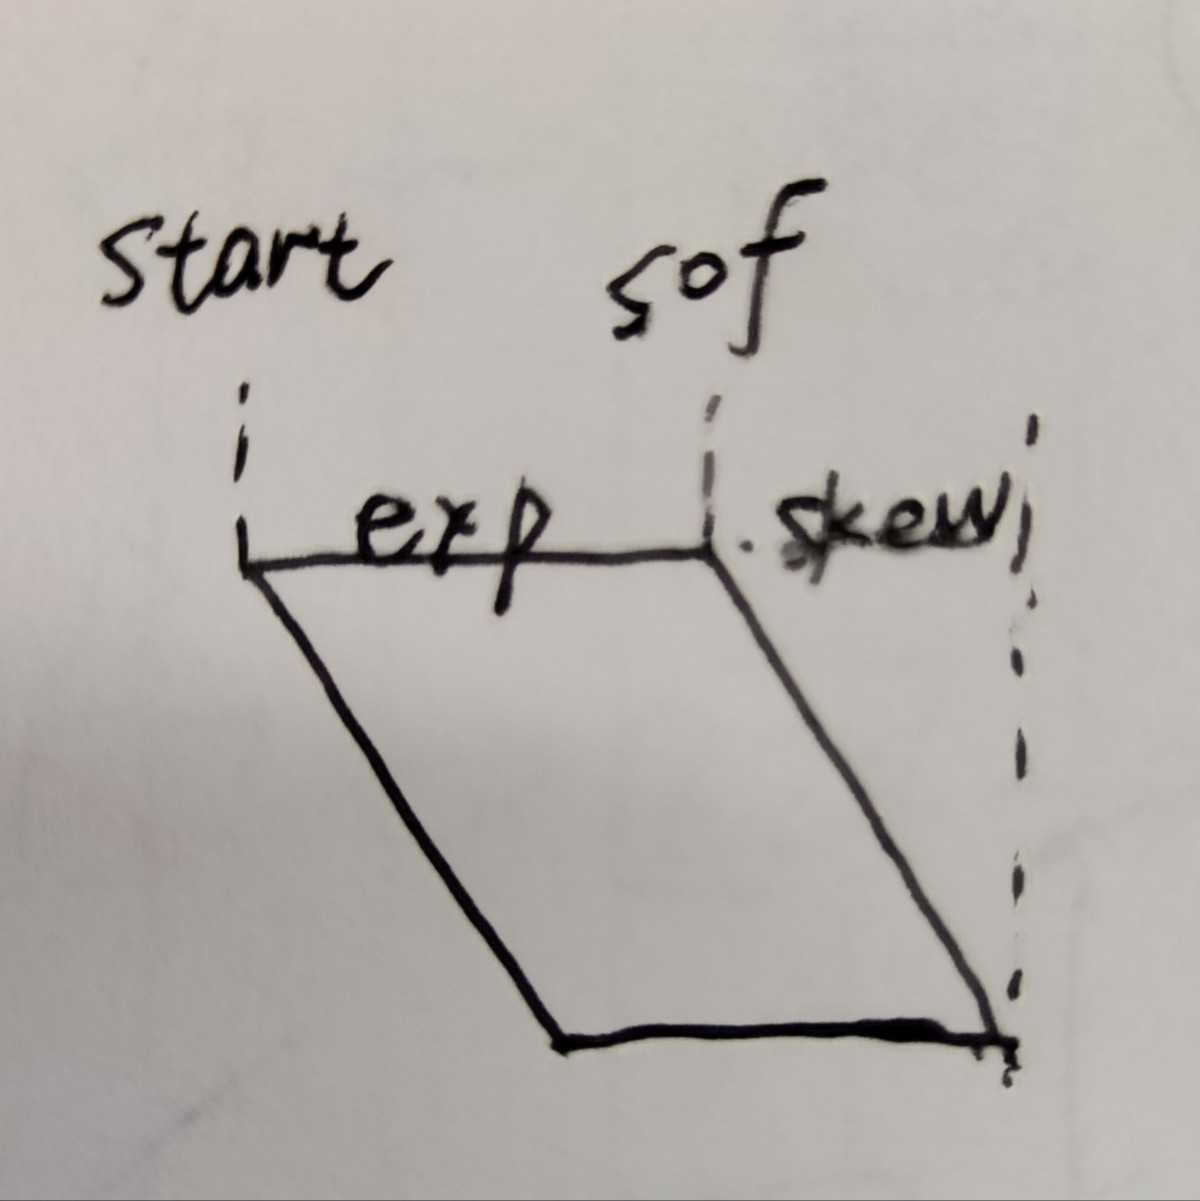 start sof
exp skew